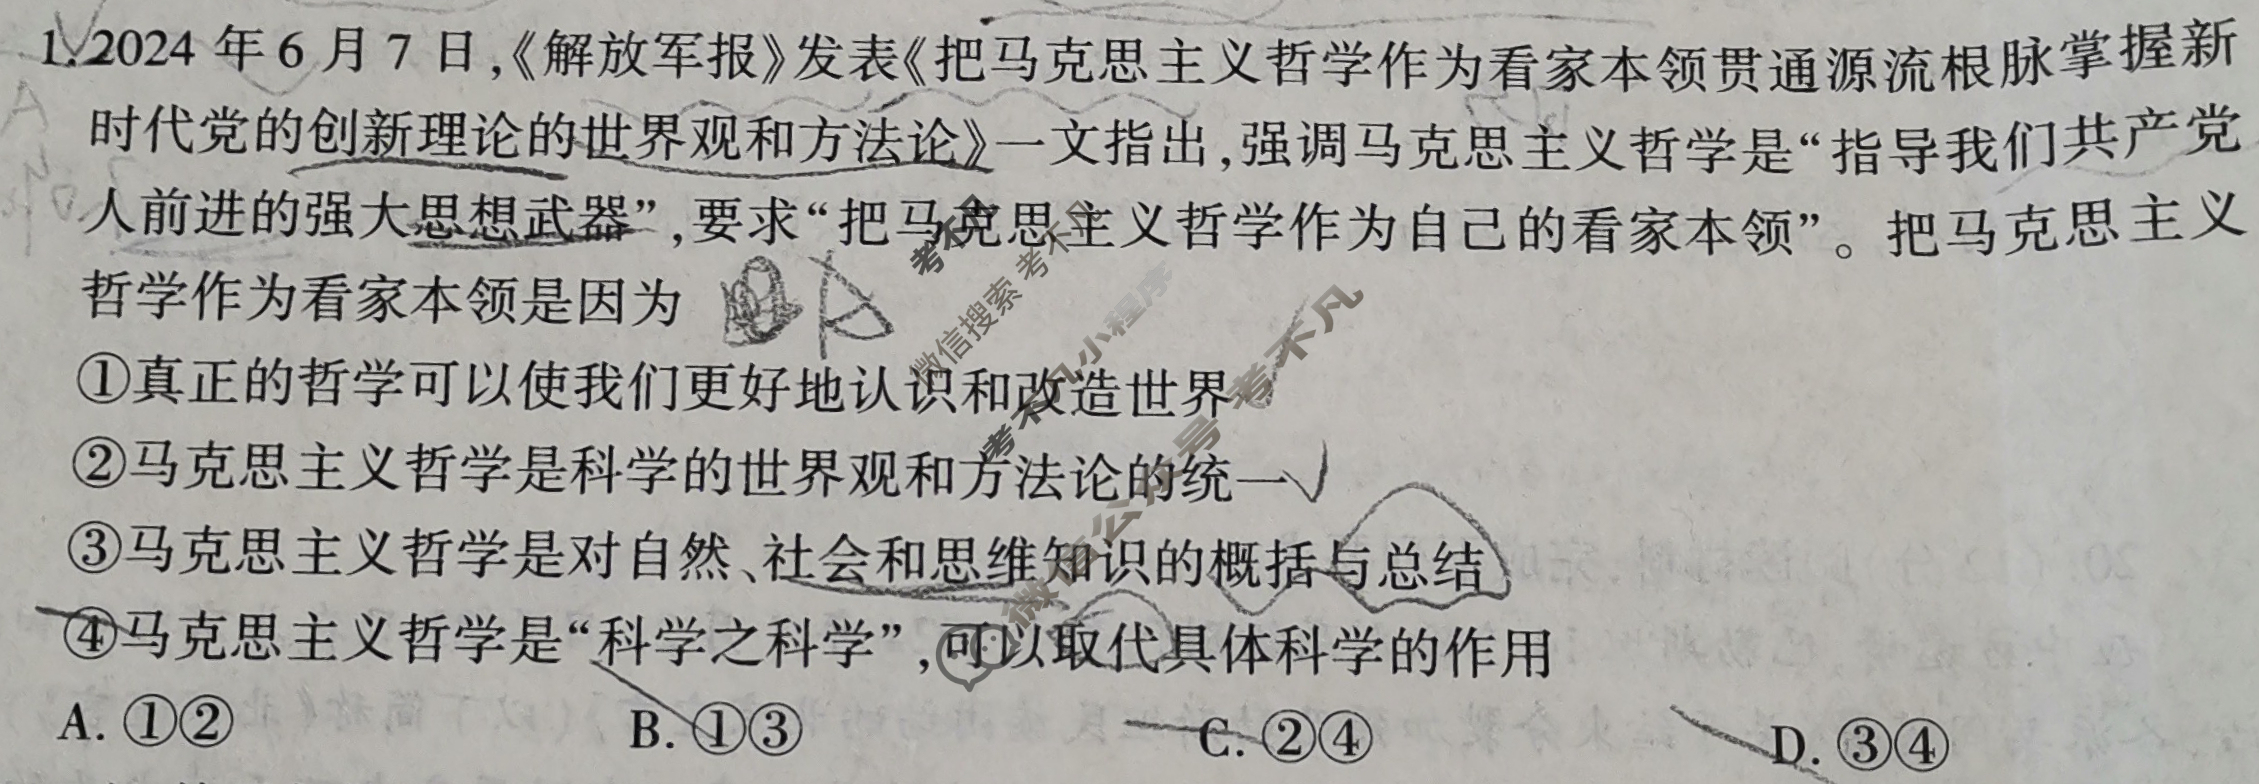 1.2024年6月7日,《解放军报》发表《把马克思主义哲学作为看家本领贯通源流根脉掌握新
时代党的创新理论的世界观和方法论》一文指出,强调马克思主义哲学是“指导我们共产党
人前进的强大思想武器”,要求“把马克思主义哲学作为自己的看家本领”。把马克思主义
哲学作为看家本领是因为
①真正的哲学可以使我们更好地认识和改造世界
②马克思主义哲学是科学的世界观和方法论的统一
③马克思主义哲学是对自然、社会和思维知识的概括与总结
④马克思主义哲学是“科学之科学”,可以取代具体科学的作用
A. ①② B. ①③ C. ②④ D. ③④
考不凡
微信搜索 考不凡
考不凡小程序
微信公众号 考不凡